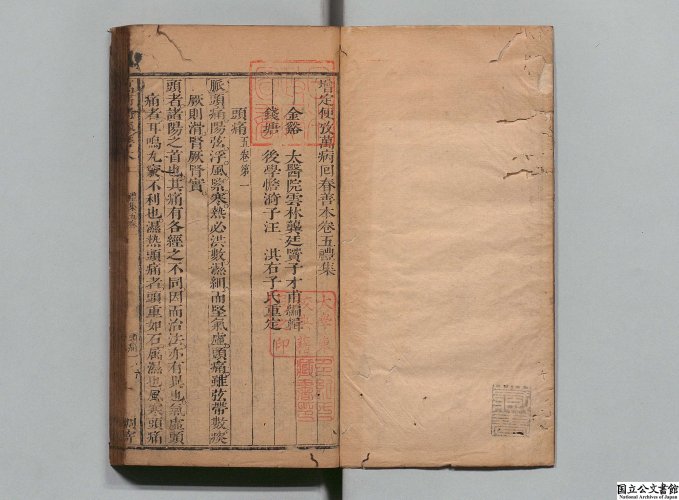 增定便攷萬病回春善本卷五禮集
金谿　太醫院雲林龔廷賢子才甫編輯
錢塘　後學憺漪子汪　淇右子氏重定
頭痛五卷第一
脈頭痛陽弦浮風緊寒熱必洪數濕細而堅氣虛頭痛雖弦帶數痰
厥則滑腎厥腎實
頭者諸陽之首也其痛有各經之不同因而治法亦有異也氣虛頭
痛者耳鳴九竅不利也濕熱頭痛者頭重如石属濕也風寒頭痛
国立公文書館
National Archives of Japan